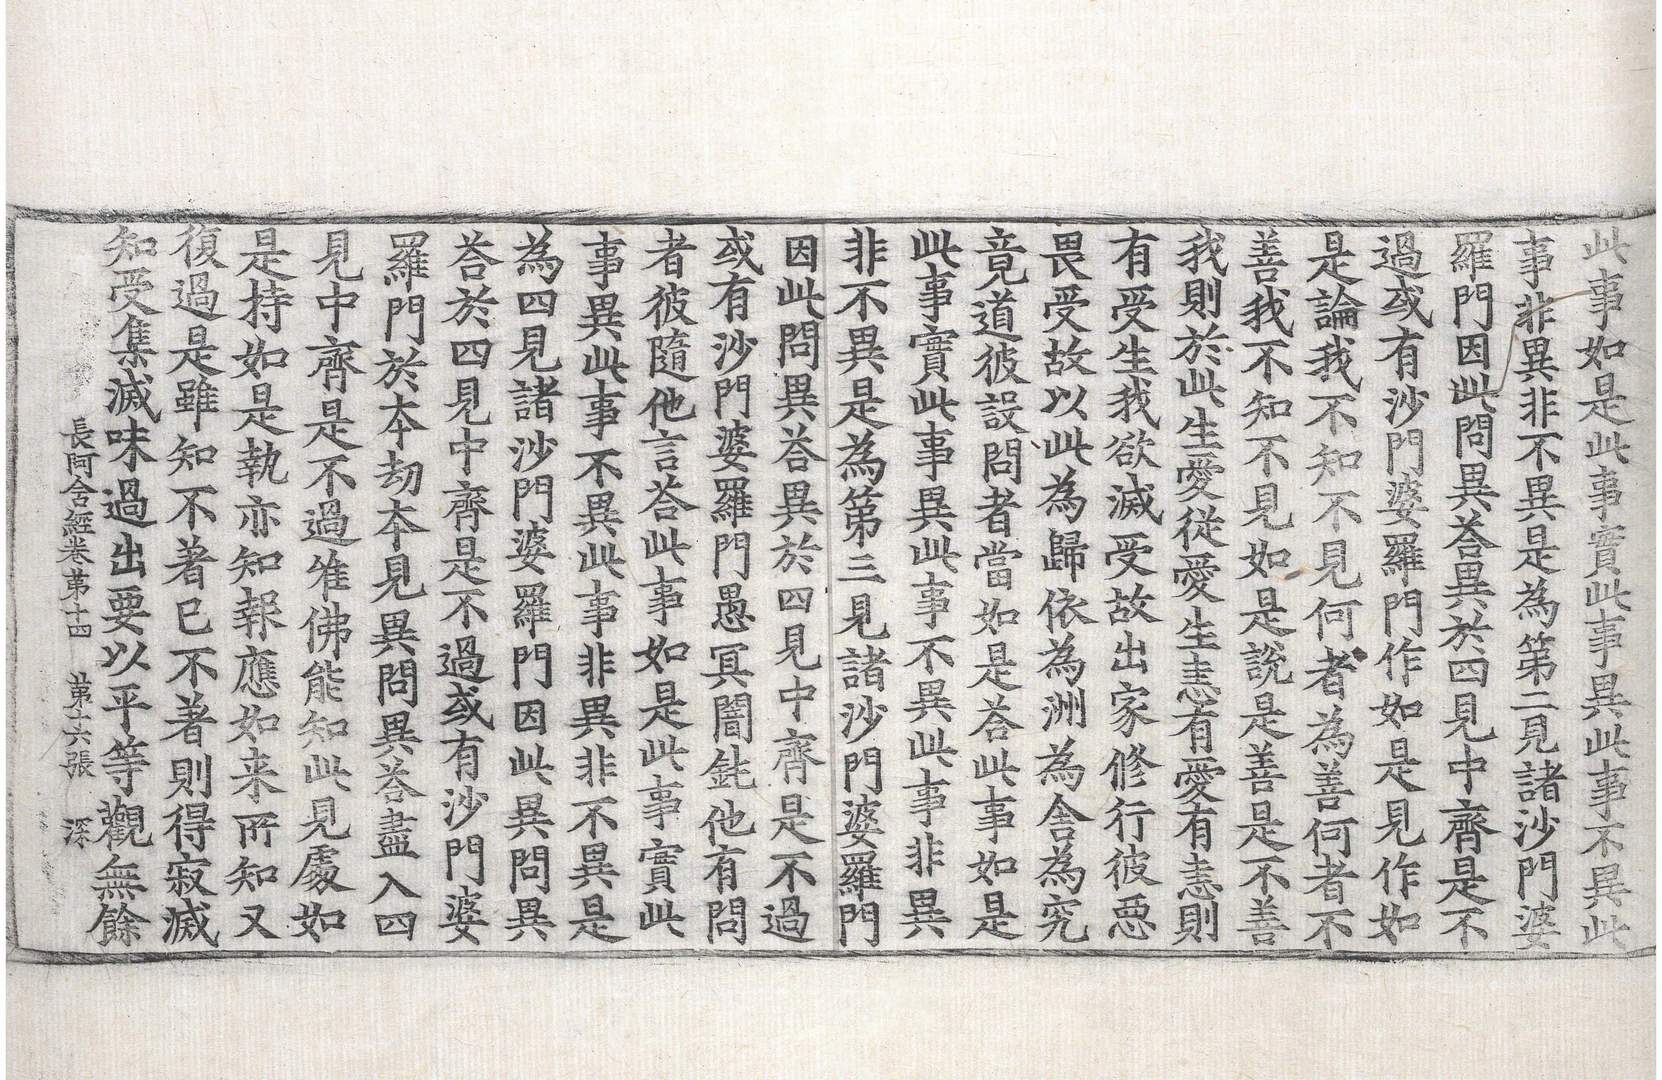 此事如是此事實此事異此事不異此
事非異非不異是為第二見諸沙門婆
羅門因此問異荅異於四見中齊是不
過或有沙門婆羅門作如是見作如
是論我不知不見何者為善何者不
善我不知不見如是說是善是不善
我則於此生愛從愛生恚有愛有恚則
有受生我欲滅受故出家修行彼惡
畏受故以此為歸依為洲為舍為究
竟道彼設問者當如是荅此事如是
此事實此事異此事不異此事非異
非不異是為第三見諸沙門婆羅門
因此問異荅異於四見中齊是不過
或有沙門婆羅門愚冥闇鈍他有問
者彼隨他言荅此事如是此事實此
事異此事不異此事非異非不異是
為四見諸沙門婆羅門因此異問異
荅於四見中齊是不過或有沙門婆
羅門於本劫本見異問異荅盡入四
見中齊是不過唯佛能知此見處如
是持如是執亦知報應如来所知又
復過是雖知不著已不著則得寂滅
知受集滅味過出要以平等觀無餘
長阿含經卷第十四 第十六張 深